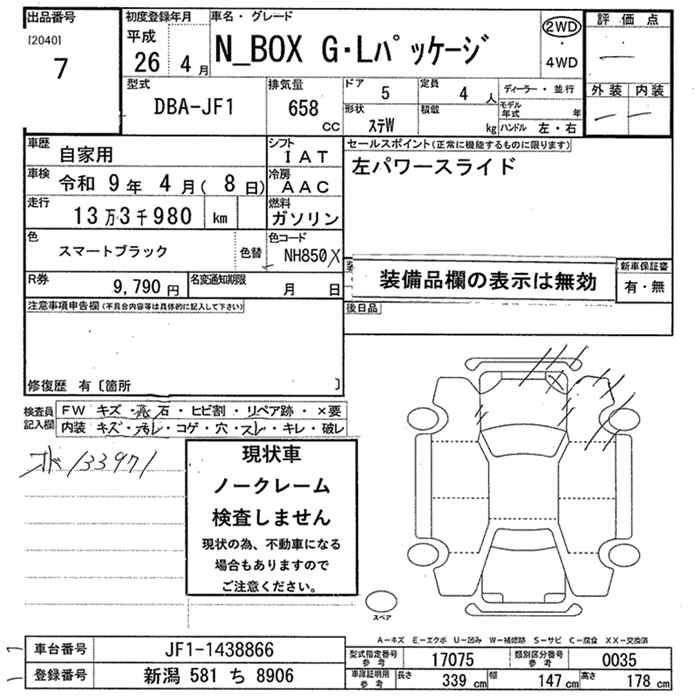 出品番号
[2040]
7
初度登録年月
平成
26 4月
車名・グレード
N_BOX G・Lパッケージ
2WD
・
4WD
評価点
外装 内装
型式
DBA-JF1
排気量
658
CC
ドア
5
定員
4 人
形状
ステW
積載
kg
ディーラー・並行
モデル年式 年
ハンドル 左・右
車歴
自家用
シフト
IAT
車検
令和 9年 4月( 8日)
冷房
AAC
走行
13万3千980 km
燃料
ガソリン
色
スマートブラック
色替
色コード
NH850X
R券
9,790円
名変通知期限
月 日
セールスポイント(正常に機能するものに限ります)
左パワースライド
装備品欄の表示は無効
新車保証書
有・無
後日品
注意事項申告欄(不具合内容等は具体的に記入して下さい)
修復歴 有〔箇所 〕
検査員記入欄
FW キズ・飛石・ヒビ割・リペア跡・×要
内装 キズ・汚レ・コゲ・穴・スレ・キレ・破レ
133971
現状車
ノークレーム
検査しません
現状の為、不動車になる
場合もありますので
ご注意ください。
スペア
A-キズ E-エクボ U-凹み W-補修跡 S-サビ C-腐食 XX-交換済
車台番号
JF1-1438866
登録番号
新潟 581 ち 8906
型式指定番号
参考
17075
類別区分番号
参考
0035
車庫証明用
参考
長さ
339 cm
幅
147 cm
高さ
178 cm